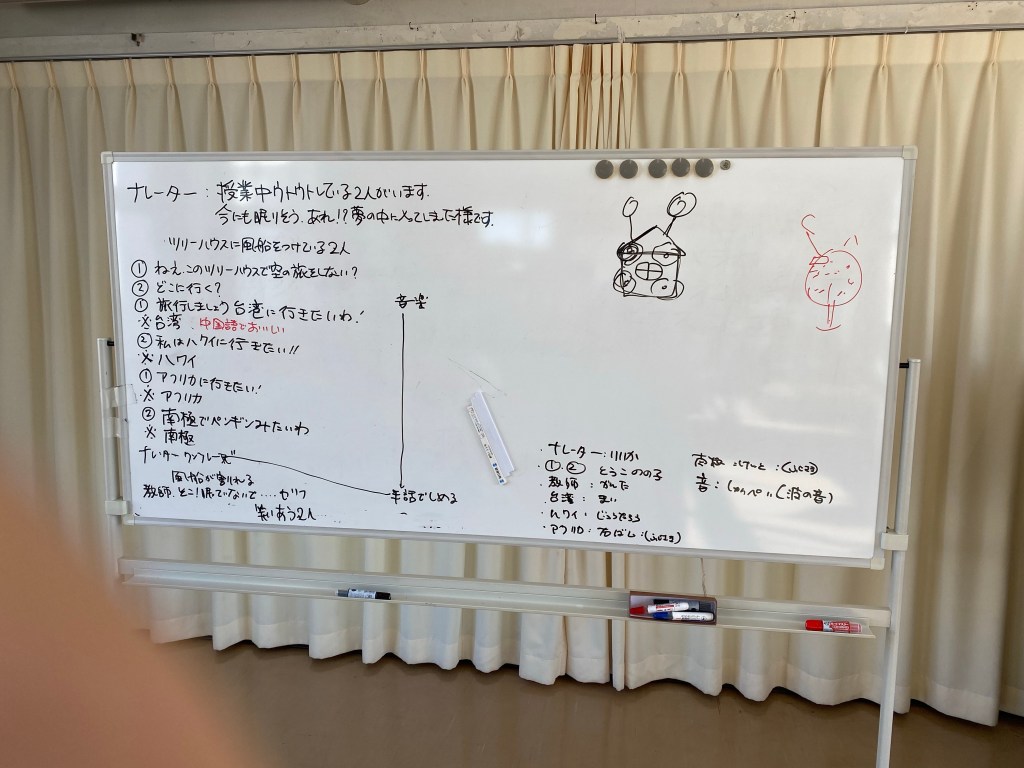 ナレーター：授業中ウトウトしている2人がいます。
今にも眠りそう、あれ!?夢の中に入ってしまった様です。
ツリーハウスに風船をつけている2人
① ねえ、このツリーハウスで空の旅をしない？
② どこに行く？
① 旅行しましょう 台湾に行きたいわ！
※ 台湾 中国語でおいしい
② 私はハワイに行きたい!!
※ ハワイ
① アフリカに行きたい！
※ アフリカ
② 南極でペンギンみたいわ
※ 南極
ナレーター ワンフレーズ
風船が割れる
教師 そこ！眠っていないで…セリフ
笑いあう2人
音楽
手話でしめる
・ナレーター：
・① ② とうこ のの子
・教師：
・台湾：まい
・ハワイ：
・アフリカ：
南極
音： (波の音)